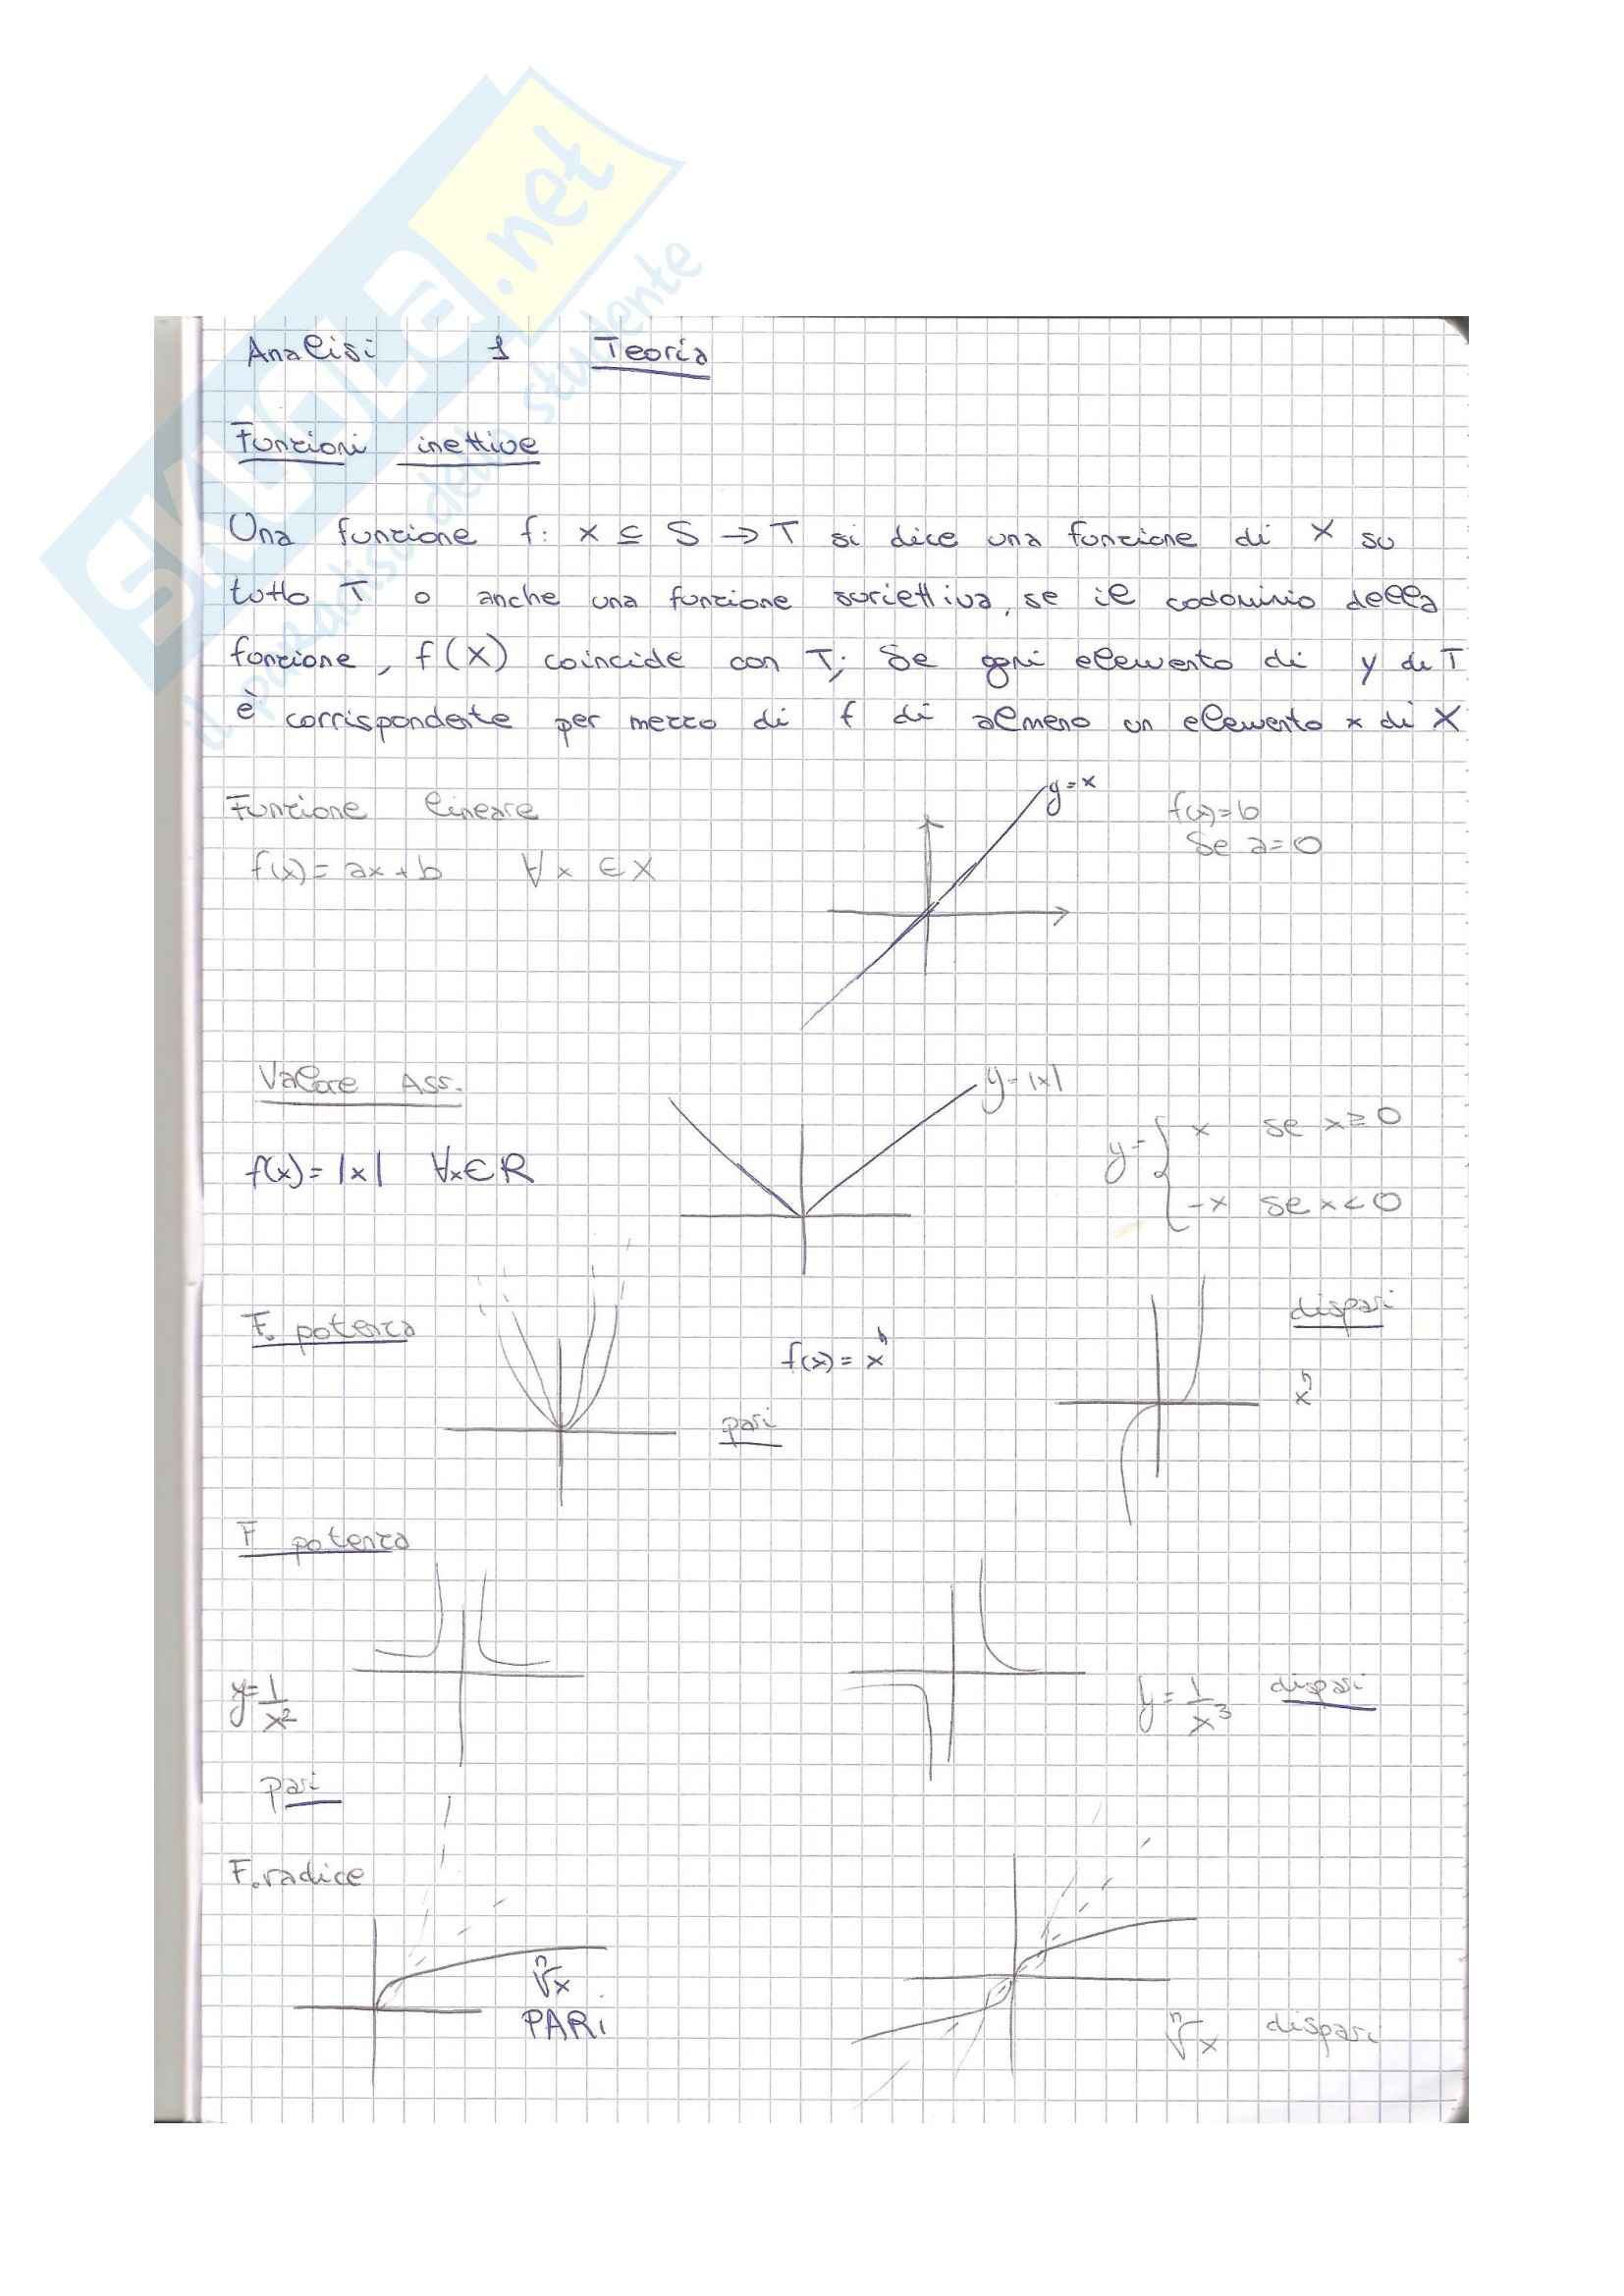 SKUOLA.net
il paradiso dello studente
Analisi 1 Teoria
Funzioni inettive
Una funzione f: X ⊆ S → T si dice una funzione di X su
tutto T o anche una funzione suriettiva, se il codominio della
funzione, f(X) coincide con T; Se ogni elemento di y di T
è corrispondente per mezzo di f di almeno un elemento x di X
Funzione lineare
y=x
f(x)=b
Se a=0
f(x)= ax+b ∀x ∈ X
Valore Ass.
y=|x|
f(x)= |x| ∀x∈R
y= { x se x≥0
-x se x<0
F. potenza
f(x)= xⁿ
pari
dispari
F potenza
y=1/x²
y=1/x³ dispari
pari
F. radice
ⁿ√x
PARI
ⁿ√x dispari